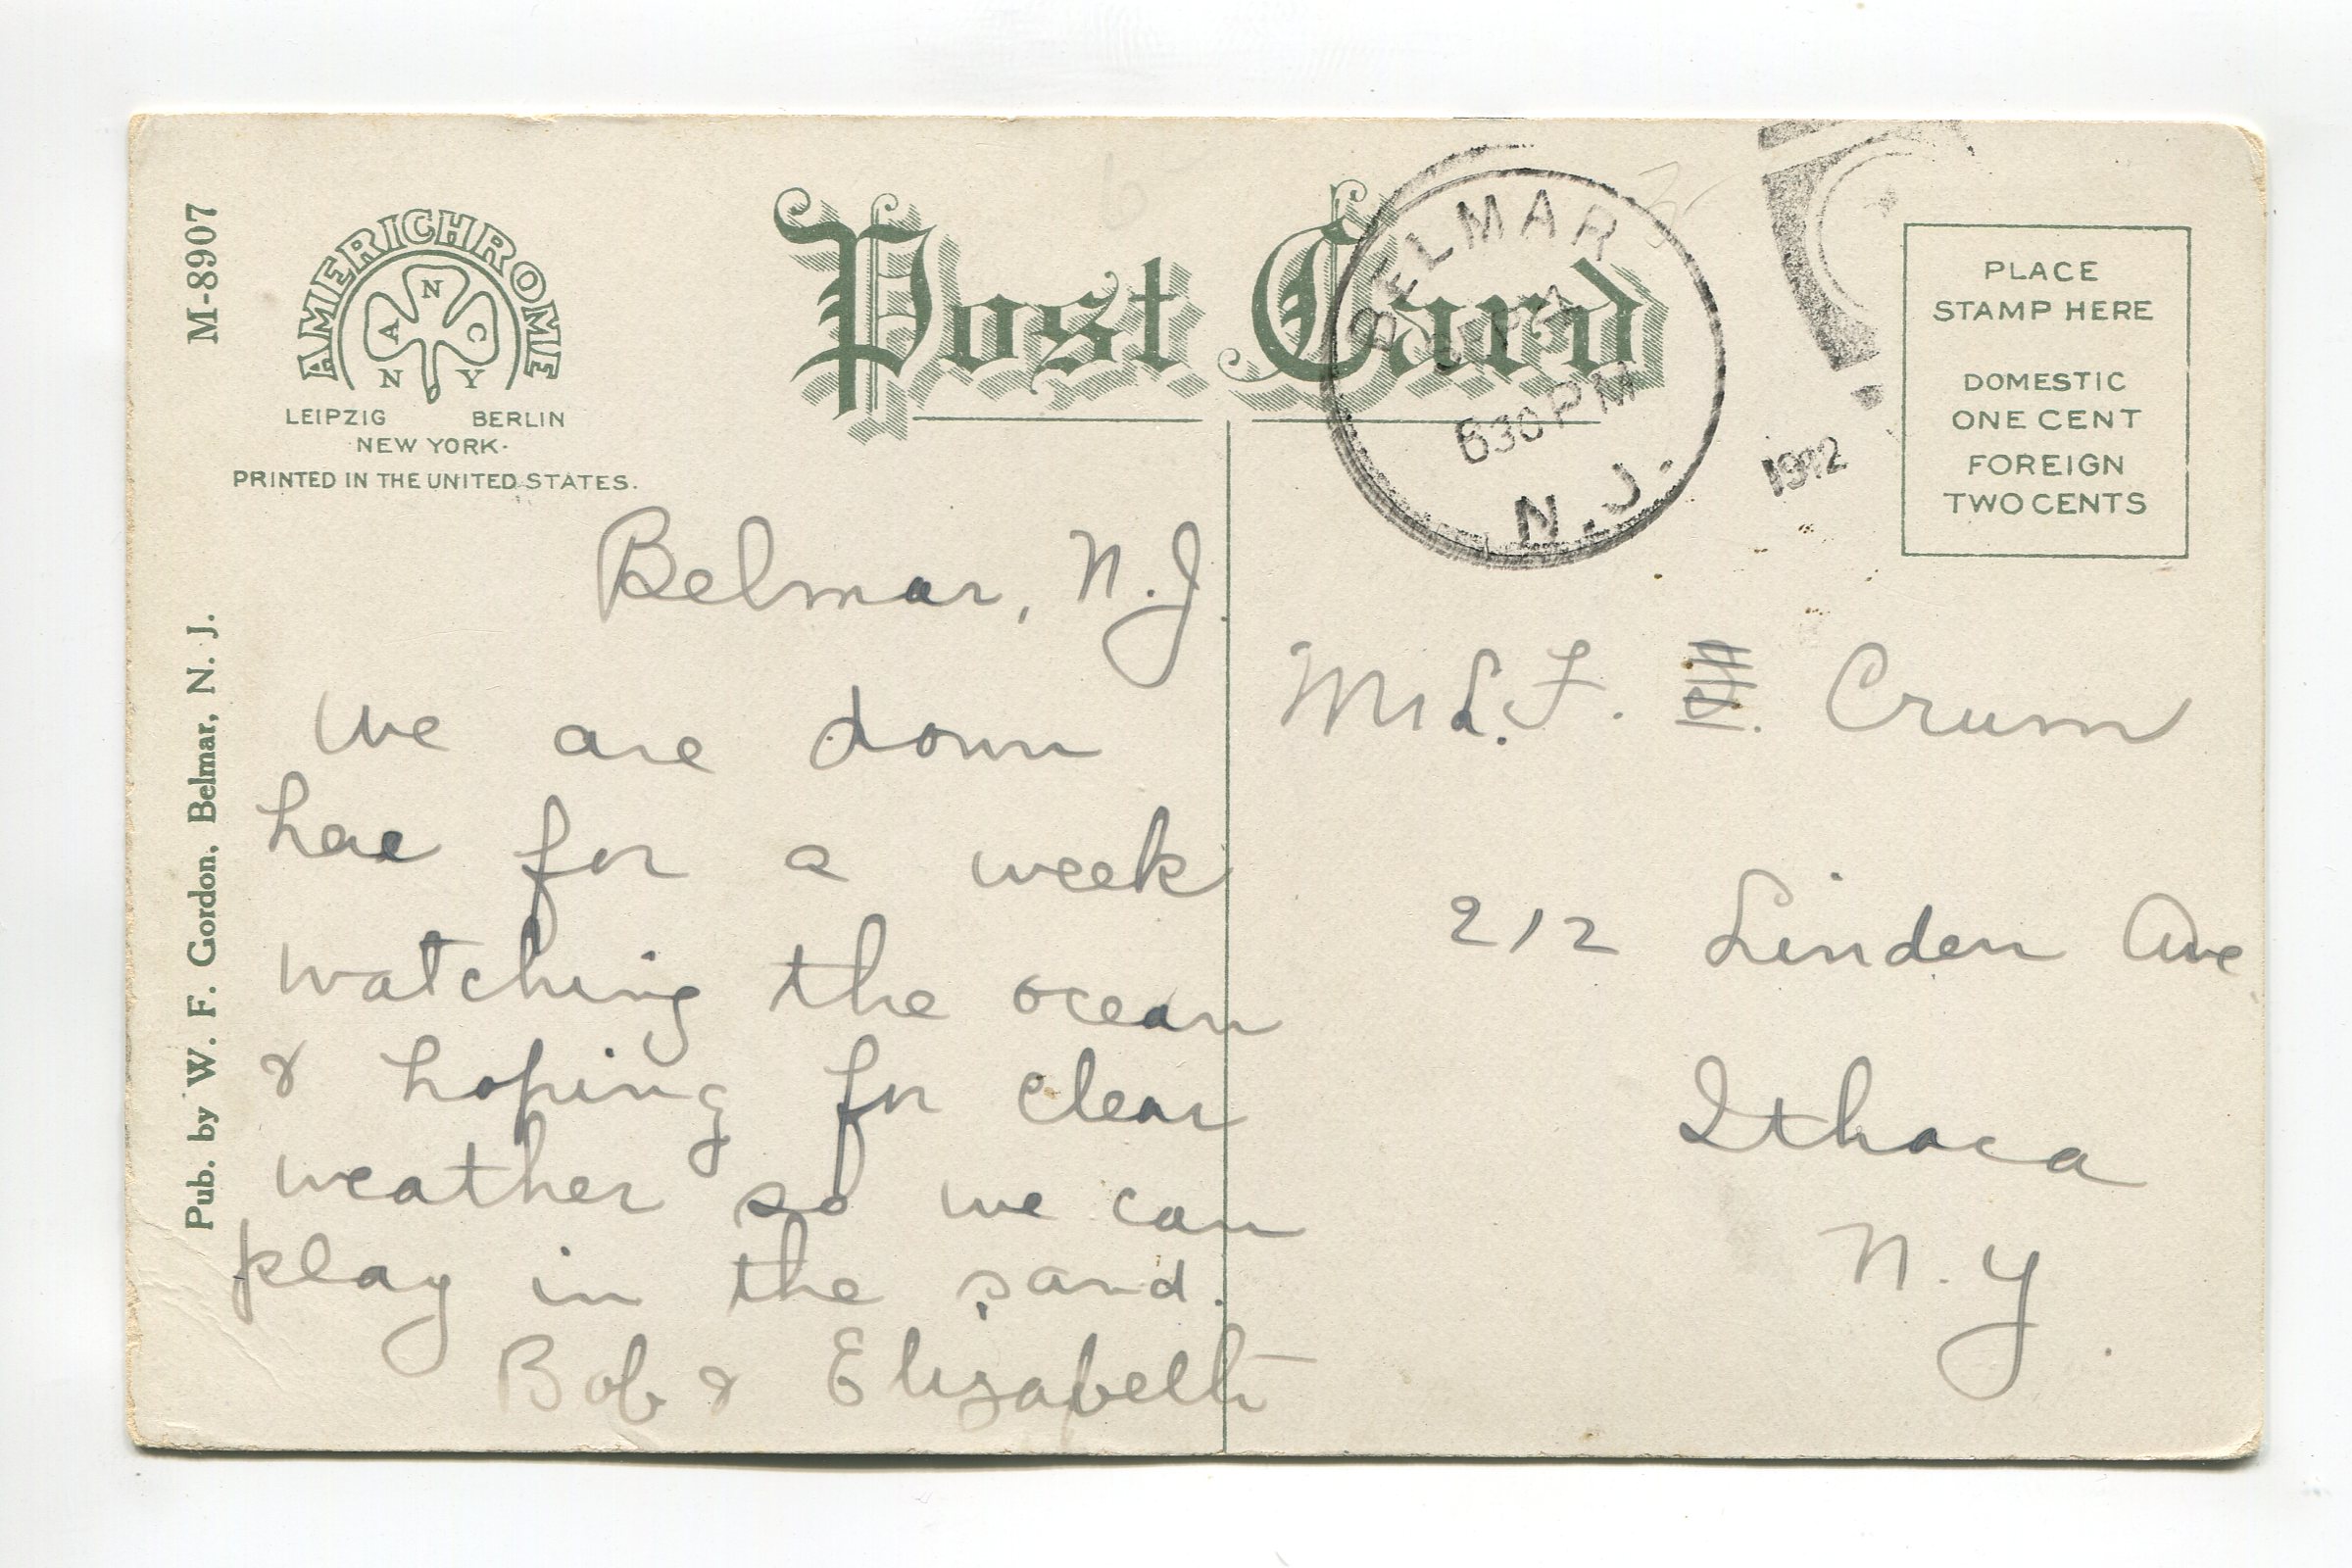 M-8907
AMERICHROME
A N C
N Y
LEIPZIG BERLIN
NEW YORK.
PRINTED IN THE UNITED STATES.
Pub. by W. F. Gordon, Belmar, N. J.
Post Card
BELMAR
630 PM
N.J.
PLACE
STAMP HERE
DOMESTIC
ONE CENT
FOREIGN
TWO CENTS
Belmar, N.J.
We are down
here for a week
watching the ocean
& hoping for clear
weather so we can
play in the sand.
Bob & Elizabeth
L. F. Crum
212 Linden Ave
Ithaca
N.Y.